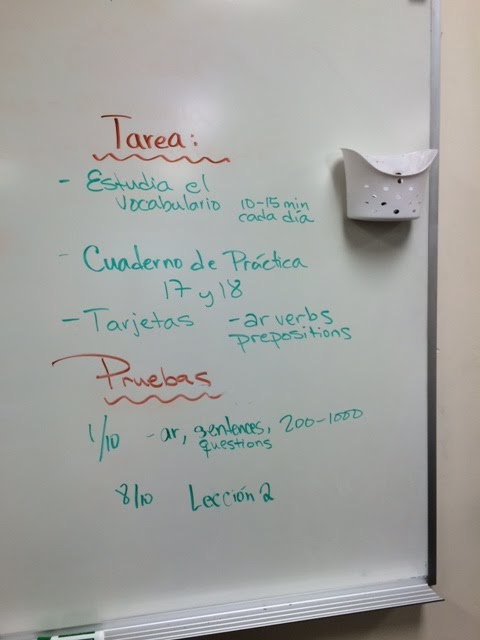 Tarea:
- Estudia el
vocabulario 10-15 min
cada día
- Cuaderno de Práctica
17 y 18
- Tarjetas -ar verbs
prepositions
Pruebas
1/10 -ar, sentences, 200-1000
questions
8/10 Lección 2